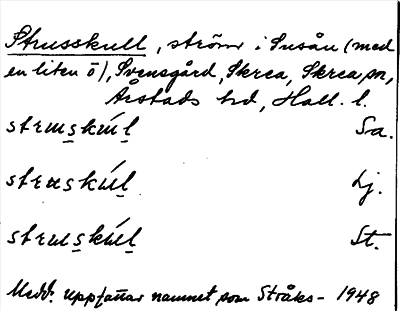 Strusskull, ström i Susån (med
en liten ö), Svensgård, Skrea, Skrea sn,
Årstads hd, Hall. l.
struskúl Sa.
struskúl Lj.
struskúl St.
Medd. uppfattar namnet som Stråks- 1948